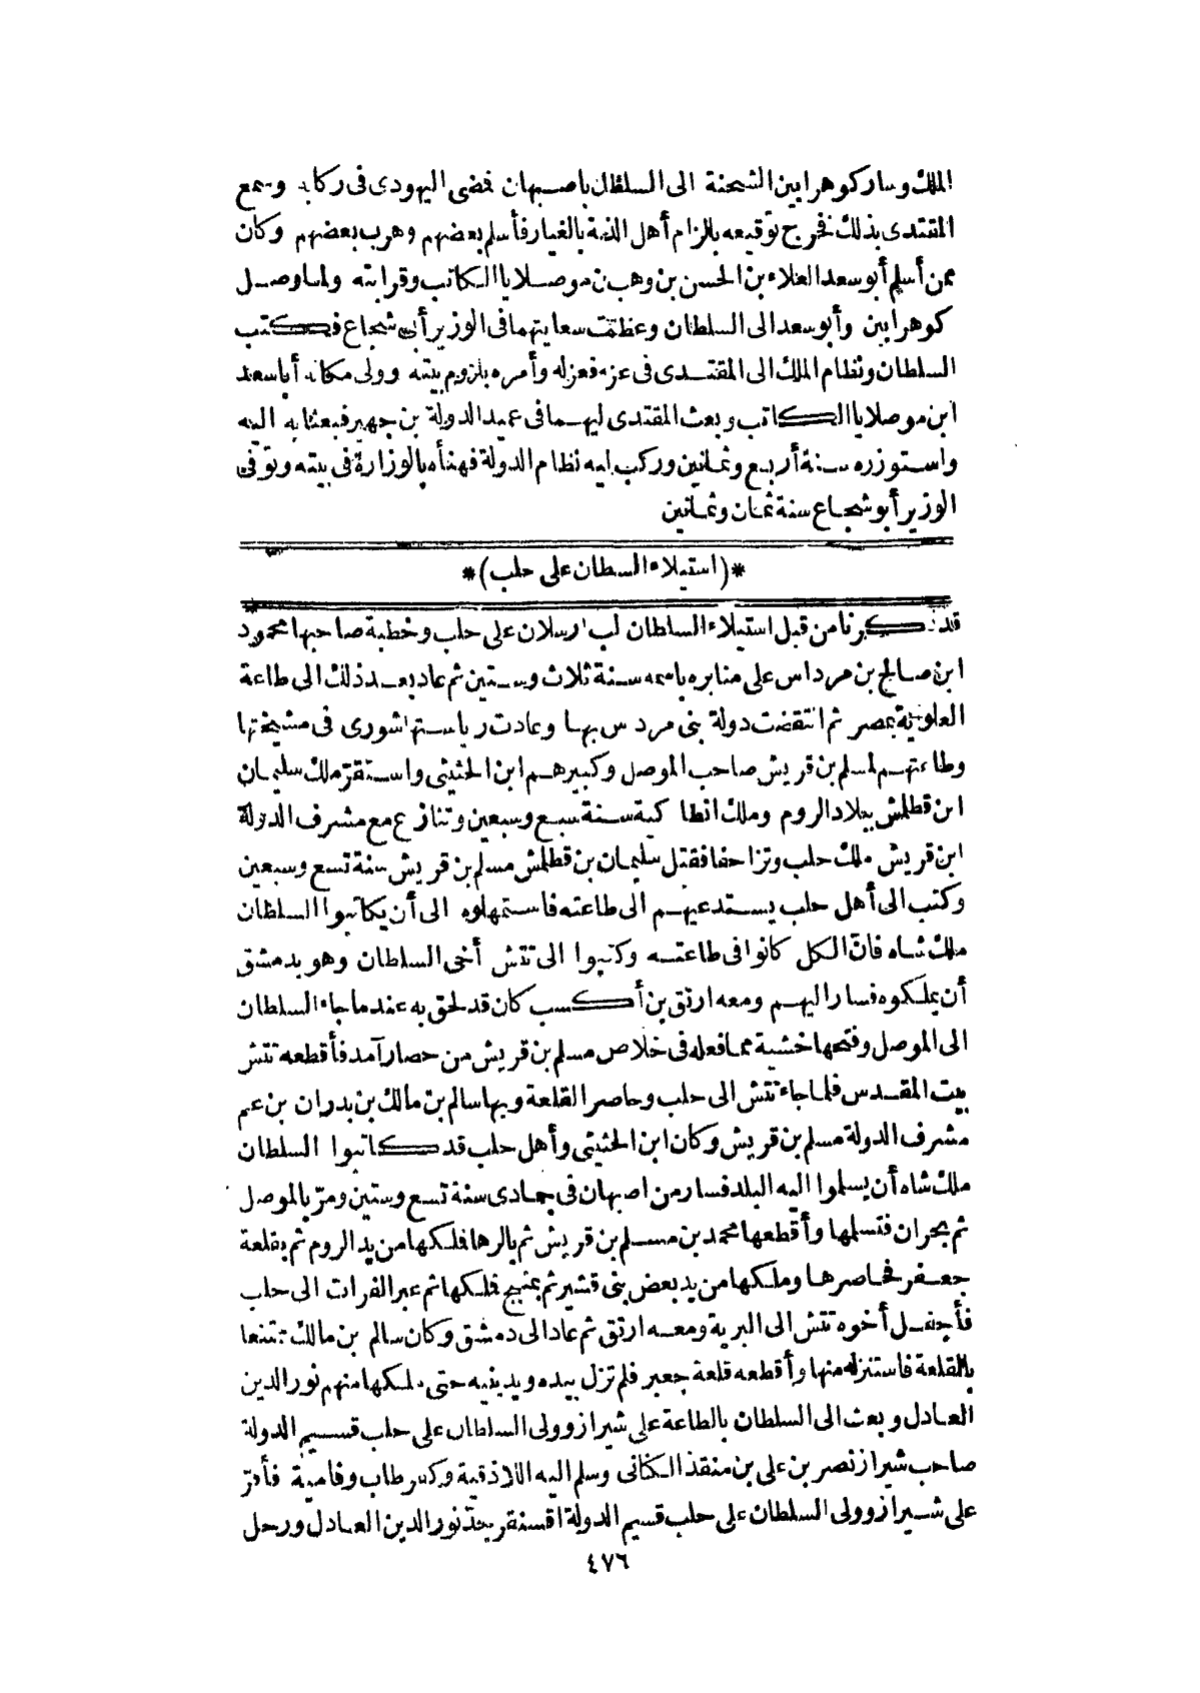 الملك وسار كوهرابين الشحنة الى السلطان باصبهان فمضى اليهودى فى ركابه وسمع
المقتدى بذلك فخرج توقيعه بالزام أهل الذمة بالغيار فأسلم بعضهم وهرب بعضهم وكان
ممن أسلم أبو سعد العلاء بن الحسن بن وهب بن موصلايا الكاتب وقرابته ولما وصل
كوهرابين وأبو سعد الى السلطان وعظمت سعايتهما فى الوزير أبى شجاع فكتب
السلطان ونظام الملك الى المقتدى فى عزله فعزله وأمره بلزوم بيته وولى مكانه أبا سعد
ابن موصلايا الكاتب وبعث المقتدى اليهما فى عميد الدولة بن جهير فبعثا به اليه
واستوزره سنة أربع وثمانين وركب اليه نظام الدولة فهنأه بالوزارة فى بيته وتوفى
الوزير أبو شجاع سنة ثمان وثمانين
*(استيلاء السطان على حلب)*
قد ذكرنا من قبل استيلاء السلطان الب ارسلان على حلب وخطبة صاحبها محمود
ابن صالح بن مرداس على منابره باسمه سنة ثلاث وستين ثم عاد بعد ذلك الى طاعة
العلوية بمصر ثم انتقضت دولة بنى مرداس بها وعادت رياستها شورى فى مشيختها
وطاعتهم لمسلم بن قريش صاحب الموصل وكبيرهم ابن الحثيثى واستقر ملك سليمان
ابن قطلمش ببلاد الروم وملك انطاكية سنة سبع وسبعين وتنازع مع مشرف الدولة
ابن قريش ملك حلب وتزاحفا فقتل سليمان بن قطلمش مسلم بن قريش سنة تسع وسبعين
وكتب الى أهل حلب يستدعيهم الى طاعته فاستمهلوه الى أن يكاتبوا السلطان
ملك شاه فان الكل كانوا فى طاعته وكتبوا الى تتش أخى السلطان وهو بدمشق
أن يملكوه فسار اليهم ومعه ارتق بن أكسب كان قد لحق به عندما جاء السلطان
الى الموصل وفتحها خشية مما فعله فى خلاص مسلم بن قريش من حصار آمد فأقطعه تتش
بيت المقدس فلما جاء تتش الى حلب وحاصر القلعة وبها سالم بن مالك بن بدران بن عم
مشرف الدولة مسلم بن قريش وكان ابن الحثيثى وأهل حلب قد كاتبوا السلطان
ملك شاه أن يسلموا اليه البلد فسار من اصبهان فى جمادى سنة تسع وستين ومر بالموصل
ثم بحران فتسلمها وأقطعها محمد بن مسلم بن قريش ثم بالرها فملكها من يد الروم ثم بقلعة
جعفر فحاصرها وملكها من يد بعض بنى قشير ثم بمنبج فملكها ثم عبر الفرات الى حلب
فأجفل أخوه تتش الى البرية ومعه ارتق ثم عاد الى دمشق وكان سالم بن مالك ممتنعا
بالقلعة فاستنزله منها وأقطعه قلعة جعبر فلم تزل بيده ويد بنيه حتى ملكها منهم نور الدين
العادل وبعث الى السلطان بالطاعة على شيراز وولى السلطان على حلب قسيم الدولة
صاحب شيراز نصر بن على بن منقذ الكنانى وسلم اليه اللاذقية وكفرطاب وفامية فأقر
على شيراز وولى السلطان على حلب قسيم الدولة اقسنقر جد نور الدين العادل ورحل
٤٧٦